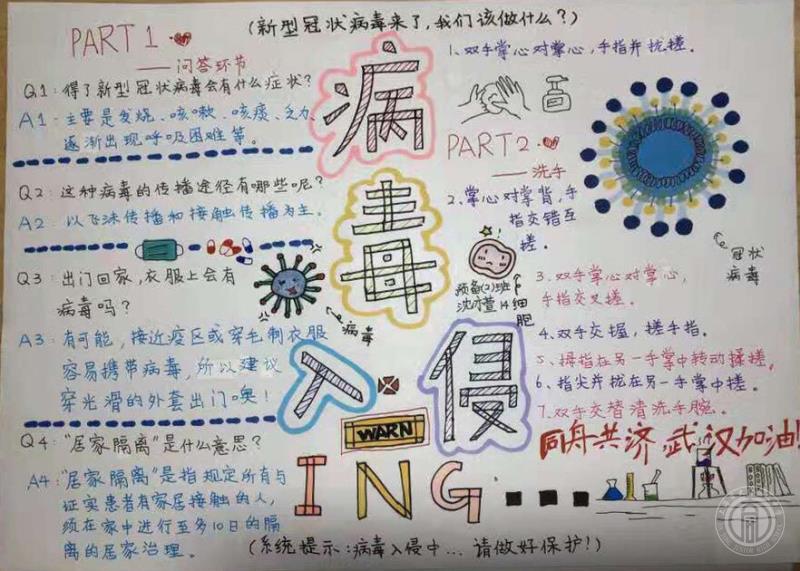 (新型冠状病毒来了,我们该做什么?)
PART 1
——问答环节
Q1:得了新型冠状病毒会有什么症状?
A1:主要是发烧、咳嗽、咳痰、乏力、
逐渐出现呼吸困难等。
Q2:这种病毒的传播途径有哪些呢?
A2:以飞沫传播和接触传播为主。
Q3:出门回家,衣服上会有
病毒吗?
A3:有可能,接近疫区或穿毛制衣服
容易携带病毒,所以建议
穿光滑的外套出门噢!
Q4:“居家隔离”是什么意思?
A4:“居家隔离”是指规定所有与
证实患者有家居接触的人,
须在家中进行至多10日的隔
离的居家治理。
病
毒
入侵
病毒
WARN
ING...
1.双手掌心对掌心,手指并拢搓。
PART2
——洗手
2.掌心对掌背,手
指交错互
搓。
冠状
病毒
预备(2)班
14
细
胞
3.双手掌心对掌心,
手指交叉搓。
4.双手交握,搓手指。
5.拇指在另一手掌中转动揉搓。
6.指尖并拢在另一手掌中搓。
7.双手交替清洗手腕。
同舟共济 武汉加油!
(系统提示:病毒入侵中...请做好保护!)